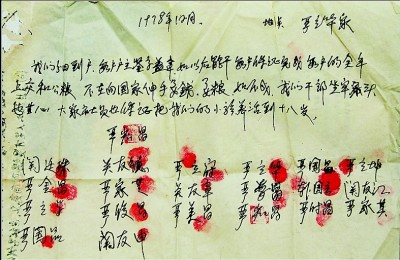 1978年12月. 地点 严立华家
我们分田到户,每户户主签字盖章,如以后能干,每户保证完成每户的全年
上交和公粮,不在向国家伸手要钱要粮,如不成,我们干部坐牢杀头
也甘心,大家社员也保证把我们的小孩养活到十八岁。
严宏昌
关廷珠 关友德 严立符 严立华 严国昌 严立坤
严金昌 严家芝 关友章 严学昌 韩国云 关友江
严立学 严俊昌 严美昌 严宏昌 严付昌 严家其
严国品 关友申